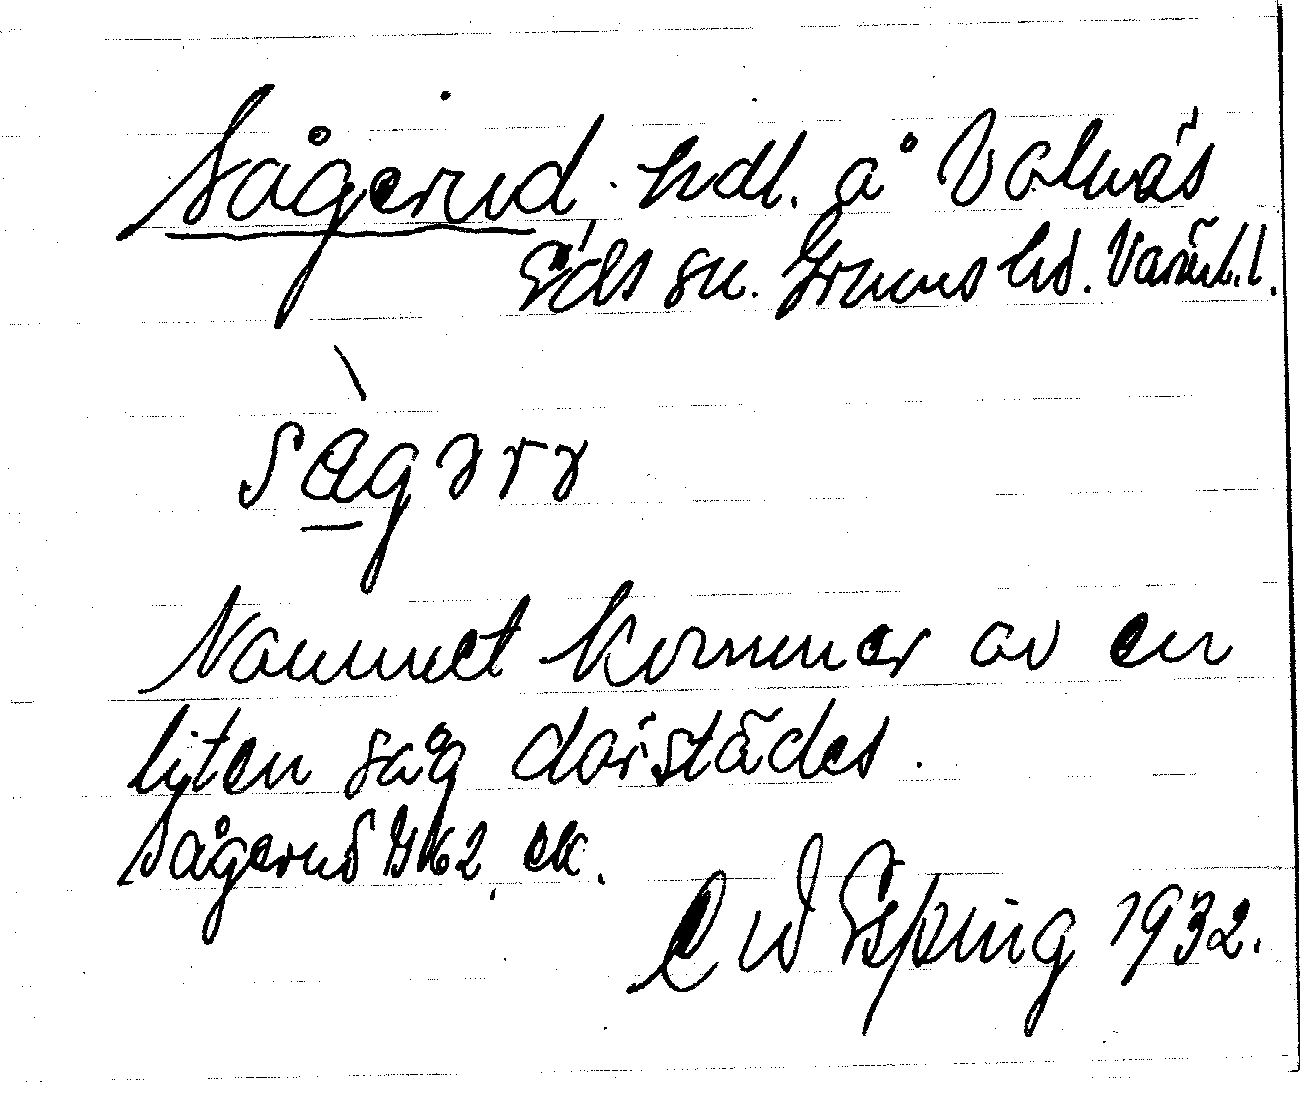 Sågerud. hdl. å Valnäs
Eds sn. Grums hd. Värml. l.
sågərə
Namnet kommer av en
liten såg därstädes.
Sågerud 62 ek.
C W Esping 1932.